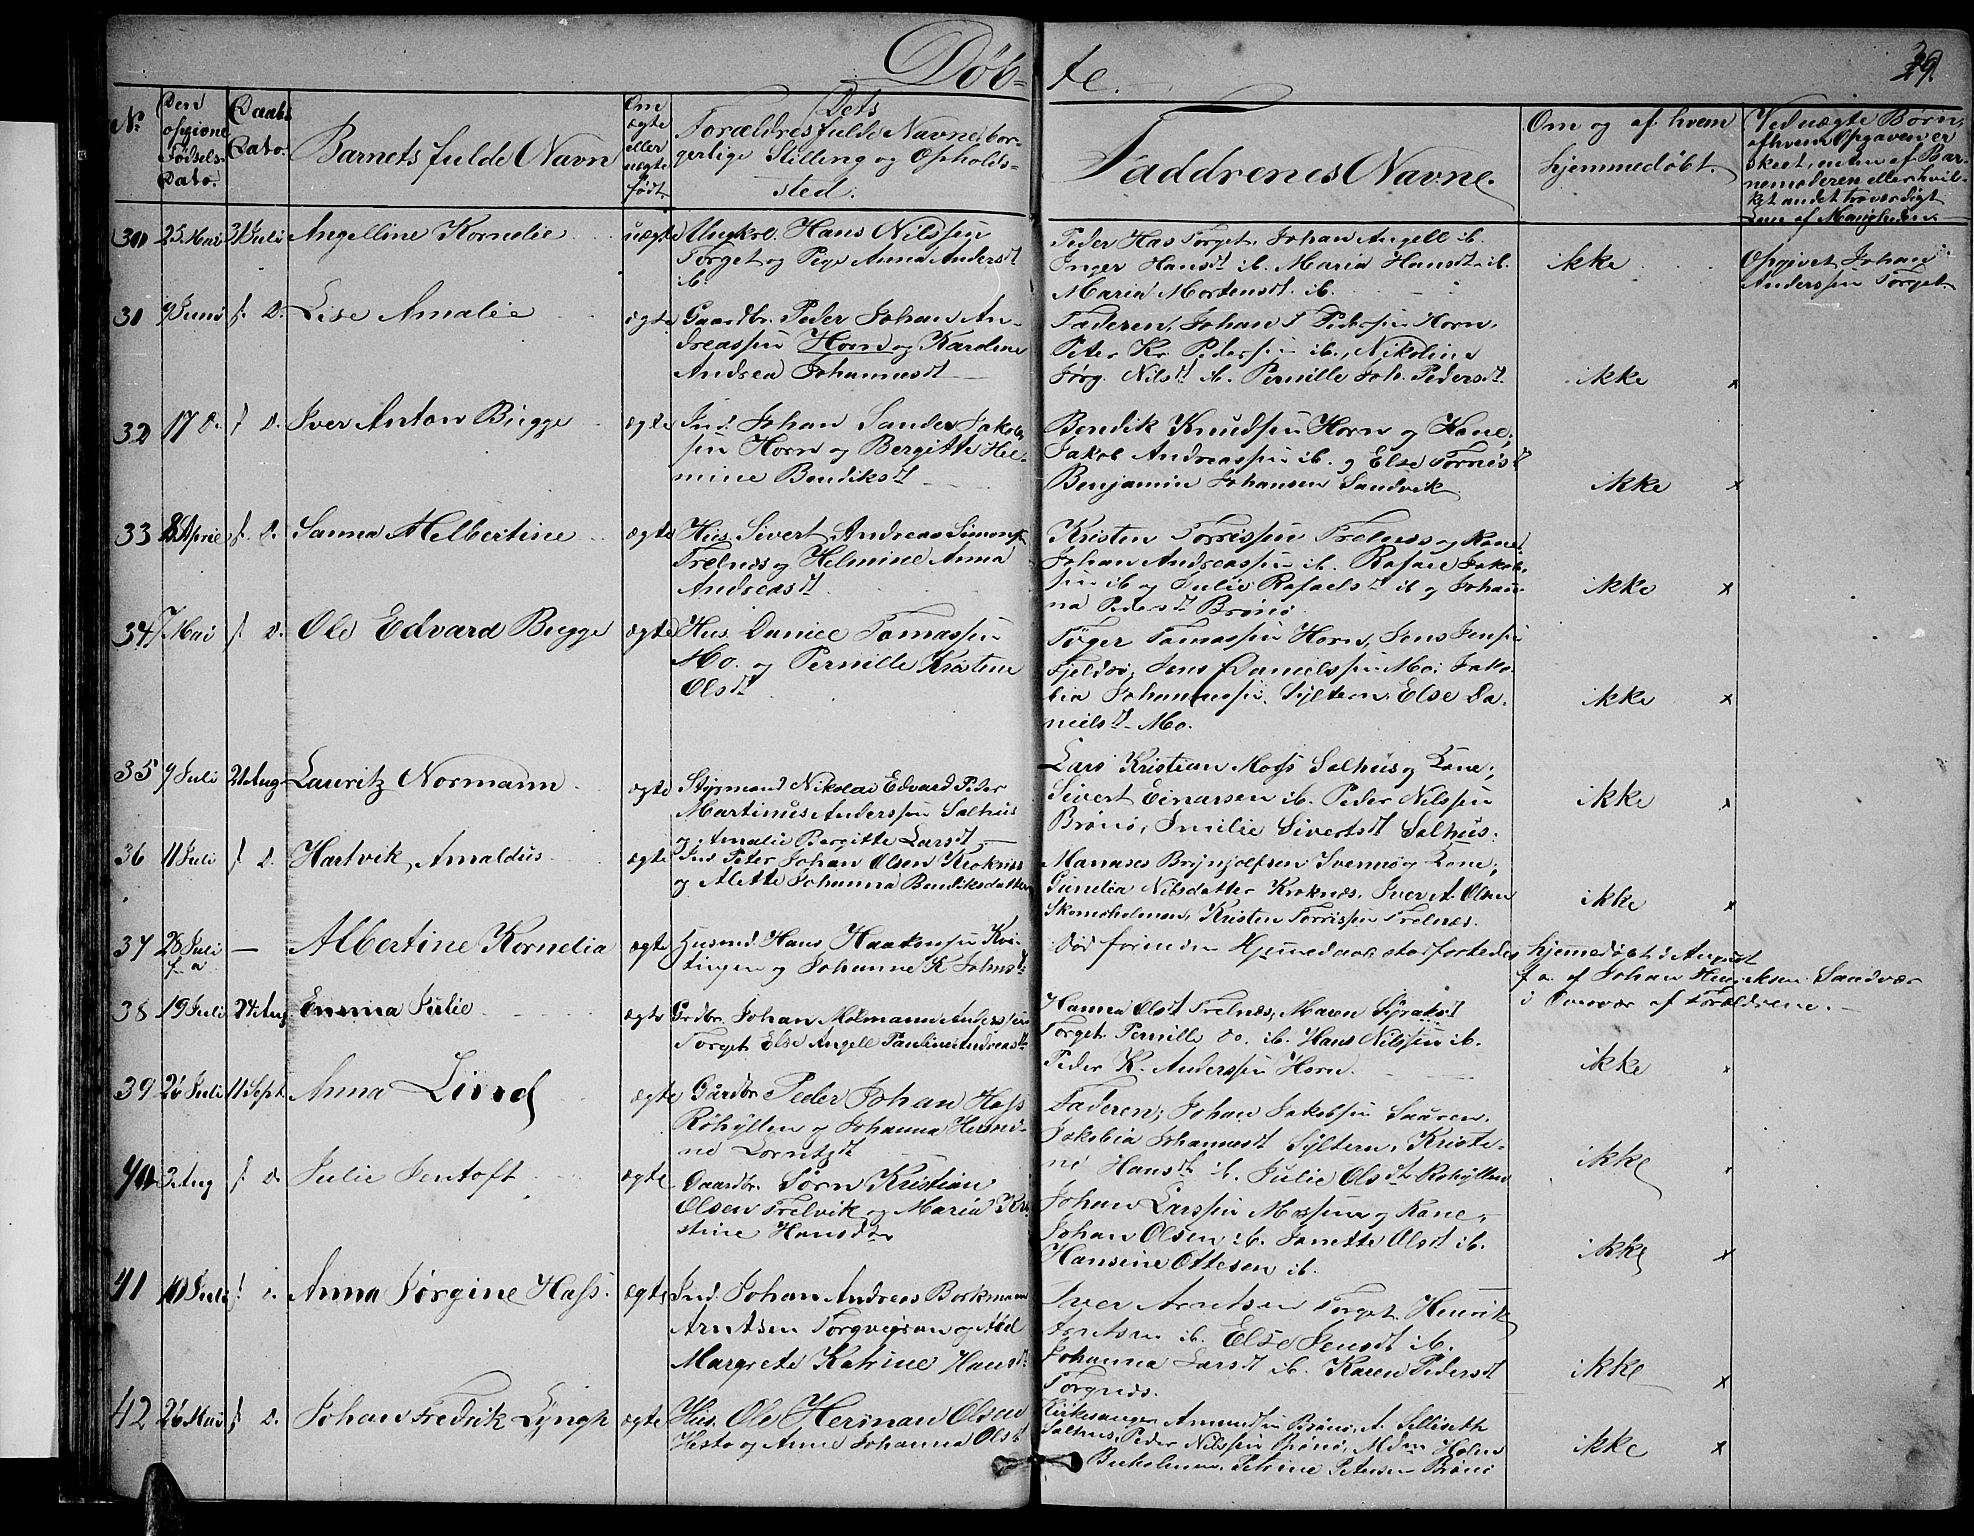 Døb-
te.
29.
No
Den opgivne Fødsels-Dato.
Daabs Dato.
Barnets fulde Navn
Om ægte eller uægte født.
Dets Forældres fulde Navne, bor-
gerlige Stilling og Opholds-
sted.
Faddrenes Navne.
Om og af hvem
hjemmedøbt.
Ved uægte Børn,
af hvem Opgaven er
skeet, enten af Bar-
nemoderen eller hvil-
ket andet troværdigt
30 25 Mai 31 Juli Angelline Kornelie uægte Ungkrl. Hans Nilssen
Torget og Pige Anna Andersdt
ib.
Peder Has Torget, Johan Angell ib.
Inger Hansdt ib. Maria Hansdt ib.
Maria Mortensdt ib.
ikke
Opgivet Johan
Anderssen Torget
31 9 Juni s. D. Lise Amalie ægte Gaardbr. Peder Johan An-
dreassen Horn og Karoline
Andrea Johannesdt
Faderen, Johan P Pederssen Horn,
Peter Kr. Pederssen ib., Nikoline
Jørg. Nilsdt ib. Pernille Joh. Pedersdt.
ikke x
32 17 D. s D. Iver Anton Bugge ægte Ind. Johan Sander Jakob-
sen Horn og Bergitte Hel-
mine Bendiksdt
Bendik Knudssen Horn og Kone,
Jakob Andreassen ib. og Else Tørrisdt
Benjamin Johansen Sandvik
ikke x
33 8 April s. D. Sanna Albertine ægte Hus. Sivert Andreas Simons.
Trelnes og Helmine Anna
Andreasdt
Kristen Torrissen Trelnes og Kone,
Johan Andreassen ib. Rafael Jakob-
sen ib og Julie Rafaelsdt ib og Johan-
na Pedersdt Brønø.
ikke x
34 7 Mai s. D. Ole Edvard Bugge ægte Hus. Daniel Tomassen
Mo. og Pernille Kristine
Olsdt
Tøger Tomassen Horn, Jens Jenssen
Fjeldsø, Jens Danielssen Mo, Jako-
bia Johannessen. Syltern, Else Da-
nielsdt Mo.
ikke x
35 9 Juli 21 Aug Lauritz Normann ægte Styrmand Nikolai Edvard Peder
Martinus Anderssen Salhus
og Amalie Bergitte Larsdt
Lars Kristian Moss Salhus og Kone,
Sivert Einarsen ib. Peder Nilssen
Brønø, Emilie Sivertsdt Salhus.
ikke x
36 11 Juli s. D. Hartvik Arnaldus ægte Ind Peter Johan Olsen Kroknes
og Alette Johanna Bendiksdatter
Manases Brynjolfsen Svennø og Kone,
Gunelia Nilsdatter Kroknes, Iver A. Olsen
Skomoholmen, Kristen Torrissen Trelnes.
ikke x
37 28 Juli f. a — Albertine Kornelia ægte Husmd. Hans Haakonssen Kvi-
tingen og Johanne K Johnsdt
Død førinden Hjemmedaab stadfæstedes
hjemmedøbt i August
f. a. af Johan Henriksen Sandvær
i Overvær af Forældrene.
38 19 Juli 24 Aug Emma Julie ægte Grdbr. Johan Molmann Anderssen
Torget Else Angell Pauline Andreasdt
Hanna Olsdt Trelnes, Maren Syraksdt
Torget Pernille do. ib. Hans Nilssen ib.
Peder K. Anderssen Horn.
ikke
39 26 Juli 11 Sept. Anna Lind ægte Gårdbr. Peder Johan Hass
Røhylten og Johanna Hermi-
ne Lorntzdt
Faderen, Johan Jakobssen Sauren,
Jakobia Johannesdt Syltern, Kristi-
ne Hansdt ib. Julie Olsdt Røhylten
ikke
40 3 Aug s D. Julie Jentoft ægte Gaardbr. Sørn Kristian
Olsen Trelvik og Maria Kri-
stine Hansdtr
Johan Larssen Mossem og Kone,
Johan Olsen ib. Janette Olsdt ib.
Hansine Ottesen ib.
ikke x
41 10 Juli s D. Anna Jørgine Hass. ægte Ind. Johan Andreas Borkmann
Arntsen Torgvegen og Abel
Margrete Katrine Hansdt
Iver Arntsen Torget. Henrik
Arntsen ib. Else Jensdt ib.
Johanna Larsdt ib. Karen Pedersdt
Torgnes.
ikke x
42 26 Mai s D. Johan Fredrik Lyngh ægte Hus. Ole Herman Olsen
Hesto og Anne Johanna Olsdt
Kirkesanger Amundsen Brønø, A. Selliseth
Salhus, Peder Nilssen Brønø, Mdm Holm
Buholmen, Petrine Petersen Brønø
ikke x